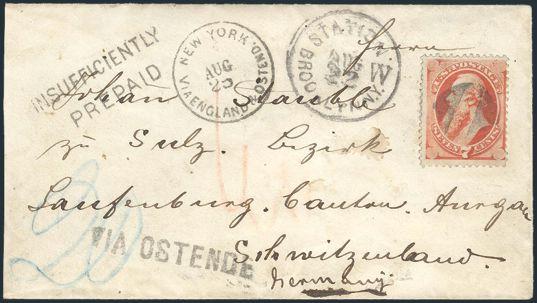 INSUFFICIENTLY
PREPAID
NEW YORK
AUG
25
VIA ENGLAND & OSTEND.
STATION
AUG
22
W
BROO N.Y.
U.S. POSTAGE
SEVEN 7 CENTS
Herrn
Johan Staubli
zu Sulz. Bezirk
Laufenburg. Canton. Aurgau
Schwitzenland.
Germany
VIA OSTENDE
20